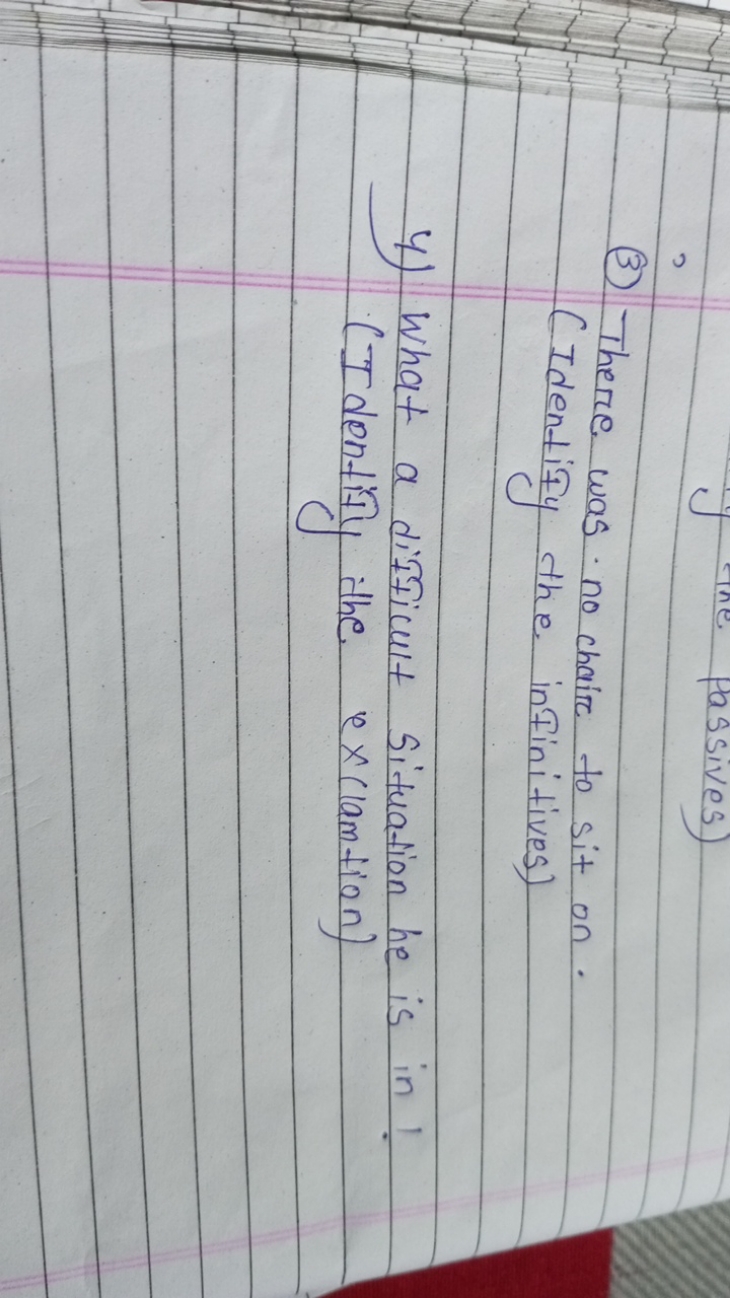 the passives)
③ There was no chair to sit on.
(Identify the infinitives)
4) What a difficult situation he is in!
(Identify the exclamtion)